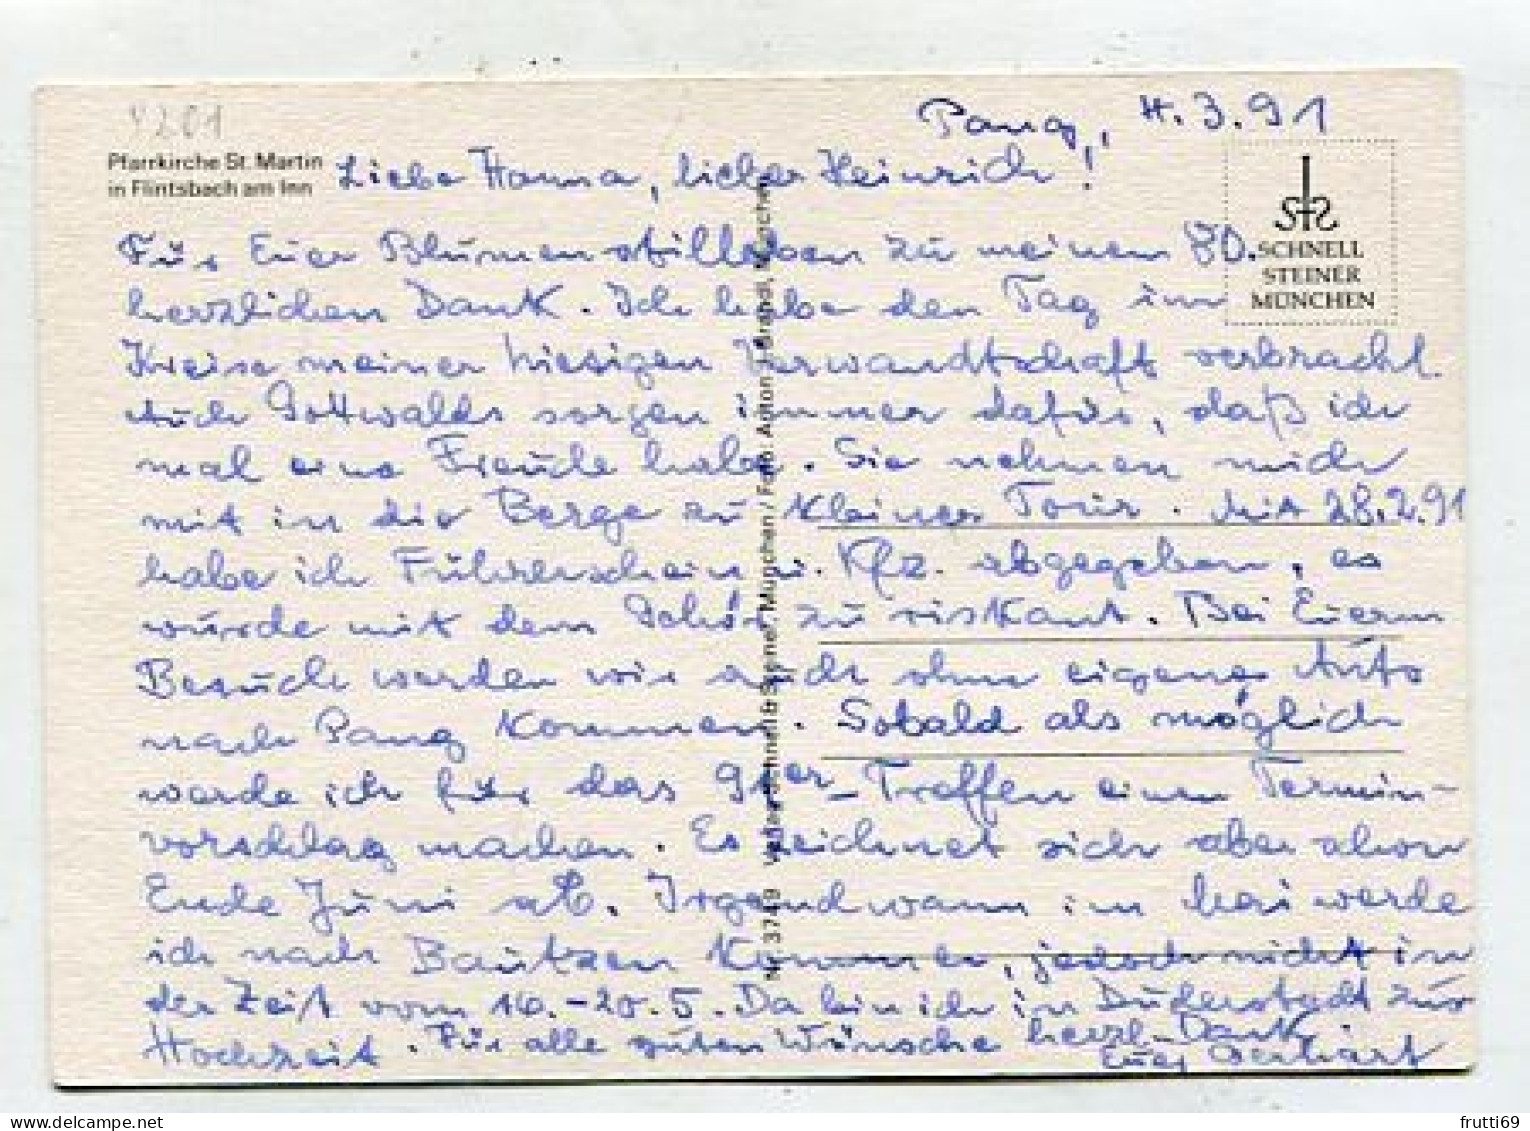 4201
Pfarrkirche St. Martin
in Flintsbach am Inn
Pang, 4.3.91
Liebe Hanna, lieber Heinrich!
SCHNELL
STEINER
MÜNCHEN
Für Euer Blumenstilleben zu meinem 80.
herzlichen Dank. Ich habe den Tag im
Kreise meiner hiesigen Verwandtschaft verbracht.
Auch Gottwalds sorgen immer dafür, daß ich
mal eine Freude habe. Sie nehmen mich
mit in die Berge zu kleiner Tour. Mit 28.2.91
habe ich Führerschein u. Kfz. abgegeben, es
wurde mit dem Gehör zu riskant. Bei Euerm
Besuch werden wir auch ohne eigenes Auto
nach Pang kommen. Sobald als möglich
werde ich für das 91er-Treffen einen Termin-
vorschlag machen. Es zeichnet sich aber schon
Ende Juni ab. Irgendwann im Mai werde
ich nach Bautzen kommen, jedoch nicht in
der Zeit vom 16.-20.5. Da bin ich in Duderstadt zur
Hochzeit. Für alle guten Wünsche herzl. Dank
Euer Gerhart
Nr. 3749 Verlag Schnell & Steiner, München / Foto: Anton J. Brandl, München
frutti69